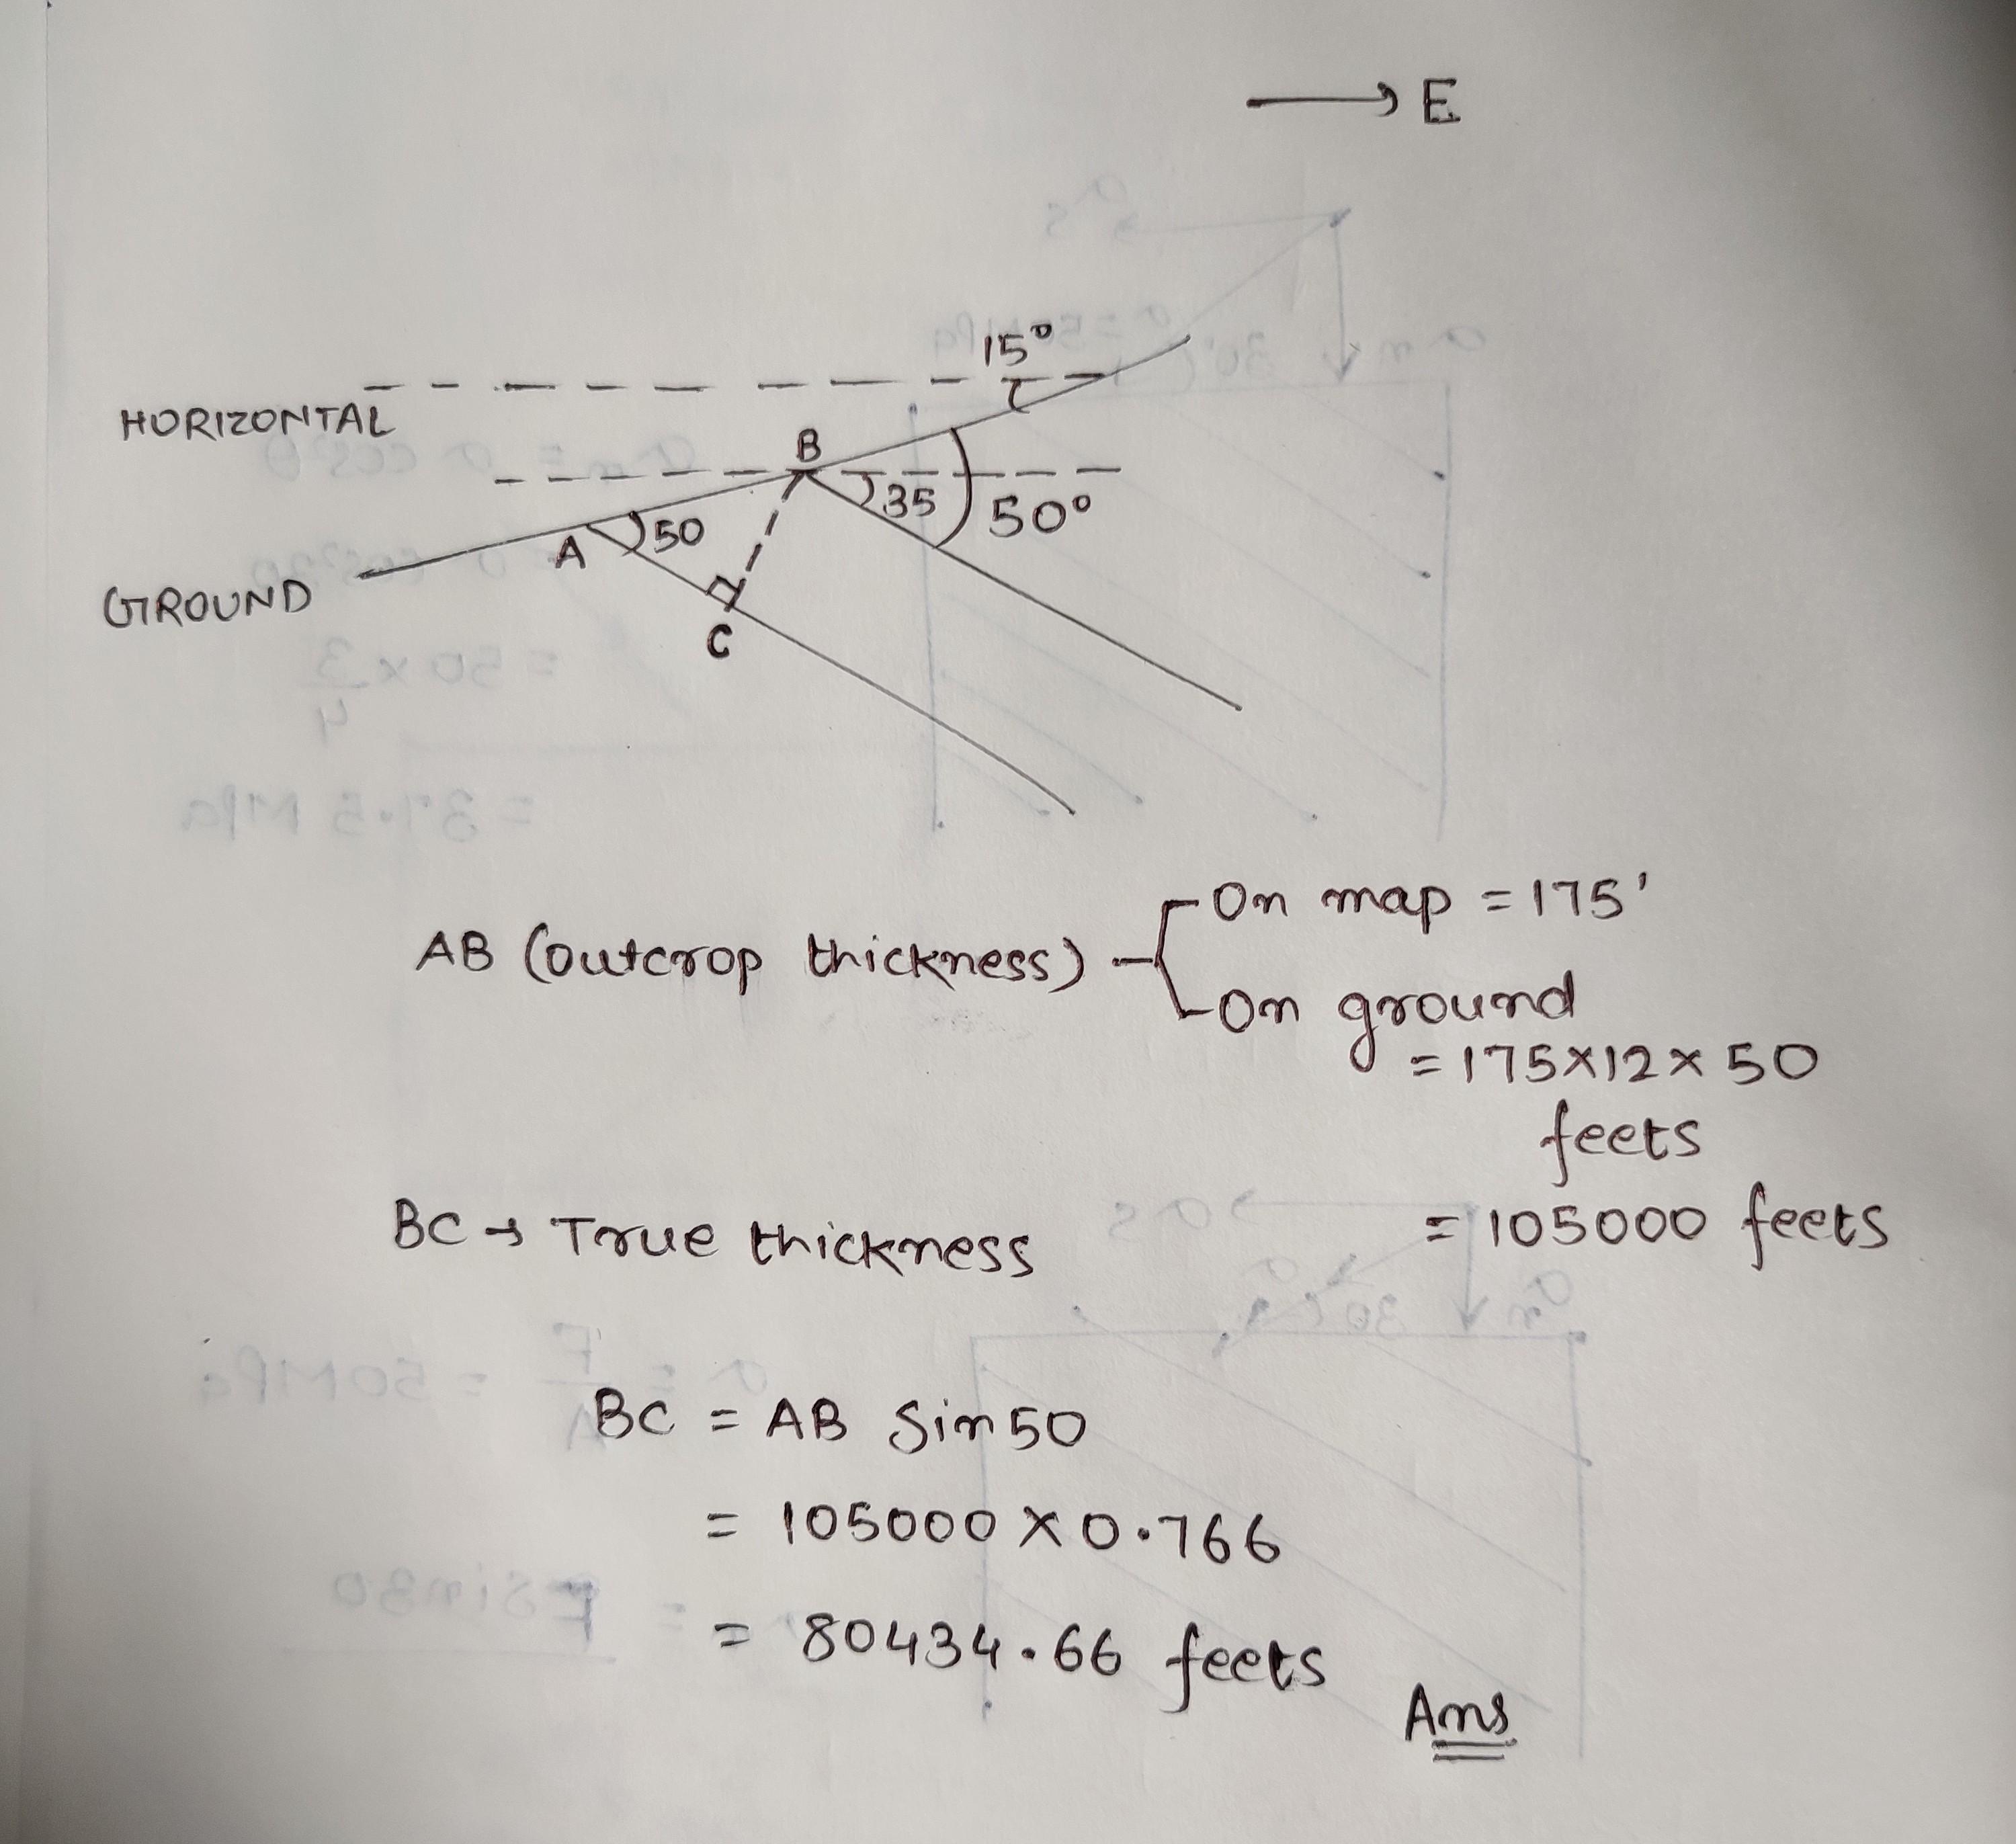 → E
15°
HORIZONTAL
B
35
50°
50
A
GROUND
C
On map = 175'
AB (outcrop thickness)
On ground
= 175×12×50
feets
= 105000 feets
BC → True thickness
BC = AB Sin50
= 105000 × 0.766
= 80434.66 feets
Ans